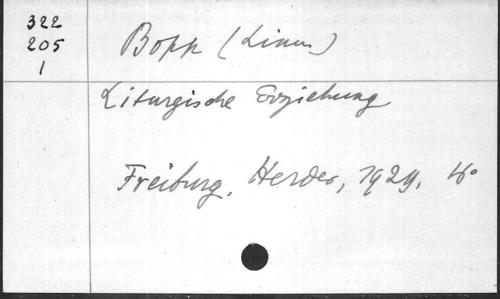 322
205
1
Bopp (Linus)
Liturgische Erziehung
Freiburg, Herder, 1929. 4°